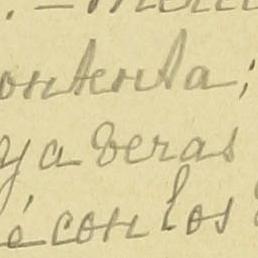 ontenta;
ya veras
é con los